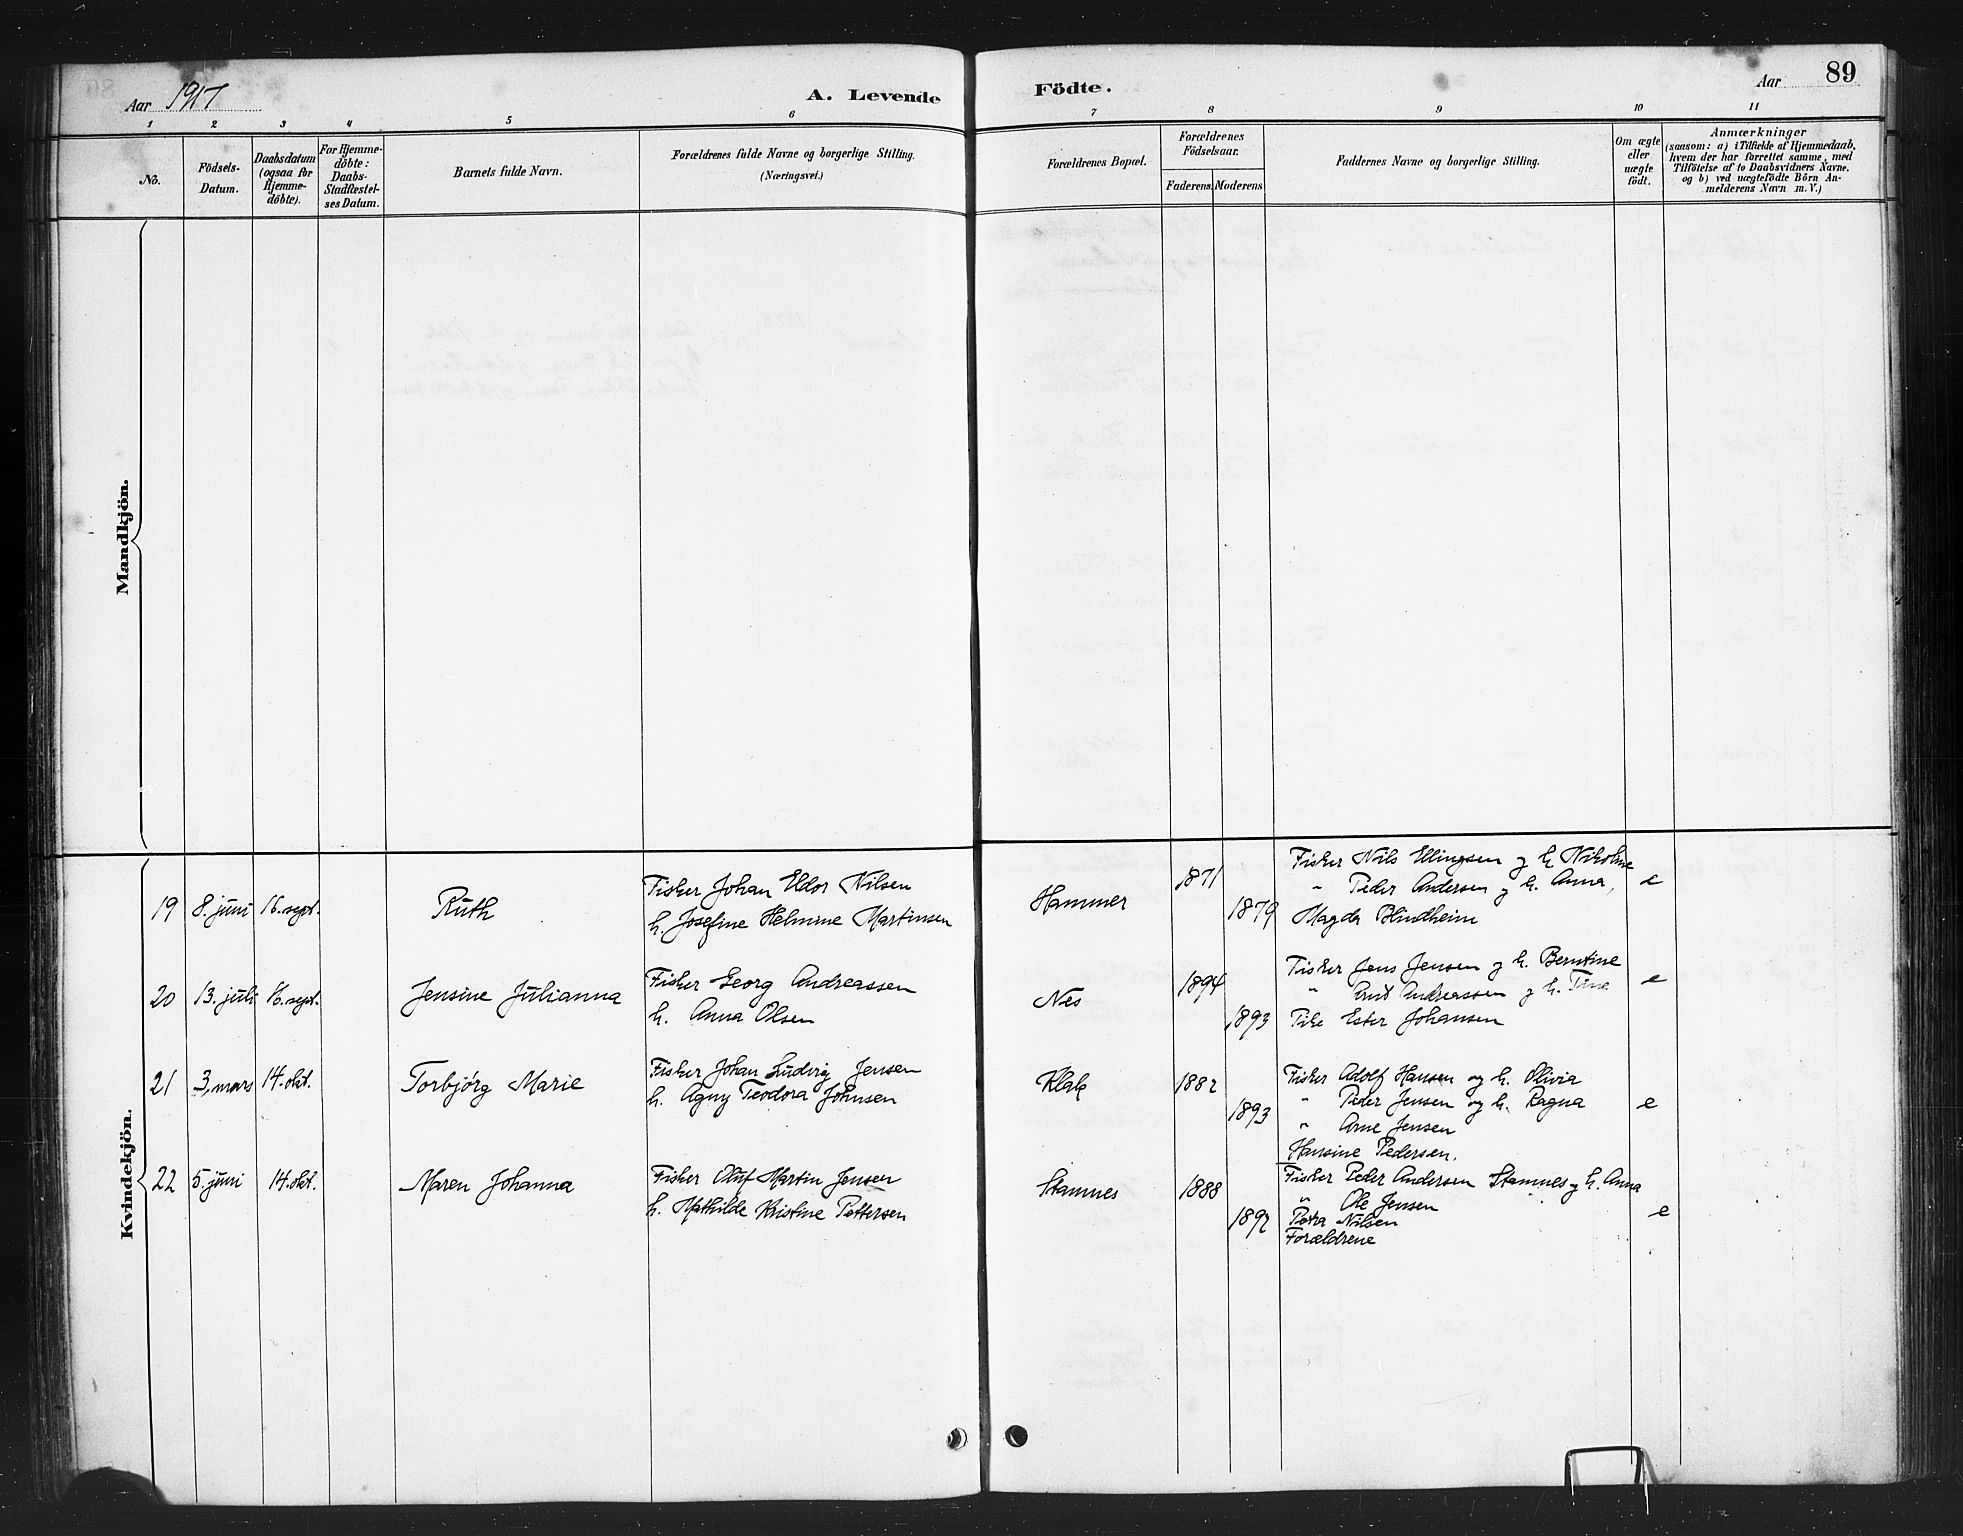 Aar 1917
A. Levende
Födte.
Aar
89
1 2 3 4 5 6 7 8 9 10 11
No.
Födsels-
Datum.
Daabsdatum
(ogsaa for
Hjemme-
döbte).
For Hjemme-
döbte:
Daabs-
Stadfæstel-
ses Datum.
Barnets fulde Navn.
Forældrenes fulde Navne og borgerlige Stilling.
(Næringsvei.)
Forældrenes Bopæl.
Forældrenes
Födselsaar.
Faderens.
Moderens.
Faddernes Navne og borgerlige Stilling.
Om ægte
eller
uægte
födt.
Anmærkninger
(saasom: a) i Tilfælde af Hjemmedaab,
hvem der har forrettet samme, med
Tilföielse af to Daabsvidners Navne,
og b) ved uægtefödte Börn An-
melderens Navn m. V.)
Mandkjön.
Kvindekjön.
19 8. juni 16. sept. Ruth
Fisker Johan Eldor Nilsen
h. Josefine Helmine Martinsen
Hammer 1871
1879
Fisker Nils Ellingsen og h. Nikoline
" Peder Andersen og h. Anna,
Magda Blindheim
e
20 13. juli 16. sept. Jensine Julianna
Fisker Georg Andreassen
h. Anna Olsen
Nes 1894
1893
Fisker Jens Jensen og h. Berntine
" Andreassen og h. Tina
Pike Ester Johansen
e
21 3. mars 14. okt. Torbjórg Marie
Fisker Johan Ludvig Jensen
h. Agny Teodora Johnsen
Klak 1882
1893
Fisker Adolf Hansen og h. Olivia
" Peder Jensen og h. Ragna
" Arne Jensen
Hansine Pedersen.
e
22 5. juni 14. okt. Maren Johanna
Fisker Oluf Martin Jensen
h. Mathilde Kristine Pettersen
Stamnes 1888
1892
Fisker Peder Andersen Stamnes og h. Anna
" Ole Jensen
Petra Nilsen
Forældrene
e